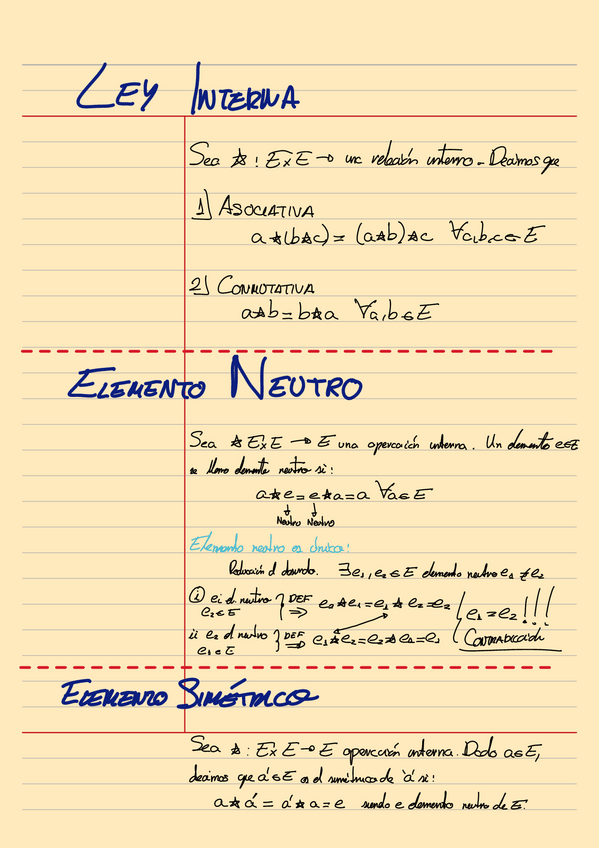 LEY INTERNA
Sea ☆ : E x E → una relación interna. Decimos que
1) ASOCIATIVA
a☆(b☆c) = (a☆b)☆c ∀a,b,c∈E
2) CONMUTATIVA
a☆b = b☆a ∀a,b∈E
ELEMENTO NEUTRO
Sea ☆ E x E → E una operación interna. Un elemento e∈E
se llama elemento neutro si:
a☆e = e☆a = a ∀a∈E
↓ ↓
Neutro Neutro
Elemento neutro es único:
Reducción al absurdo. ∃e₁, e₂ ∈ E elemento neutro e₁ ≠ e₂
i) e₁ el. neutro } DEF ⇒ e₂☆e₁ = e₁☆e₂ = e₂
e₂∈E
e₁ = e₂!!!
ii e₂ el neutro } DEF ⇒ e₁☆e₂ = e₂☆e₁ = e₁
e₁∈E
CONTRADICCIÓN
ELEMENTO SIMÉTRICO
Sea ☆ : E x E → E operación interna. Dado a∈E,
decimos que a'∈E es el simétrico de 'a' si:
a☆a' = a'☆a = e siendo e elemento neutro de E.